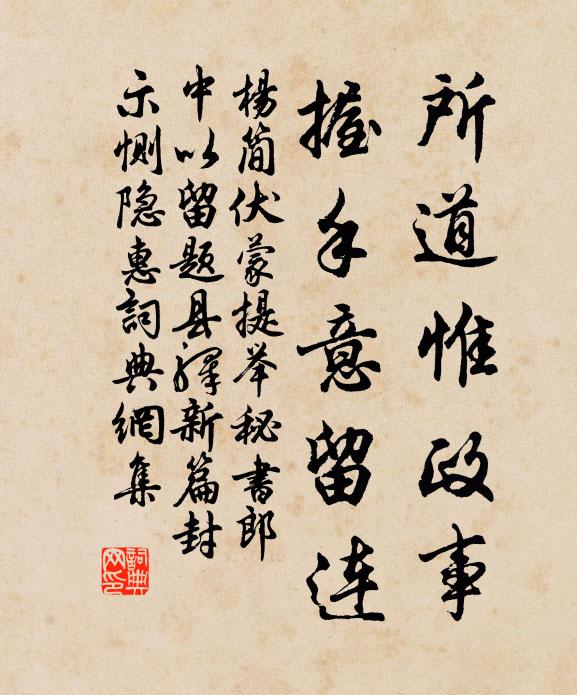 所道惟政事
握手意留连
杨简伏蒙提举秘书郎
中以留题县驿新篇封
示恻隐惠词典網集
詞典网印